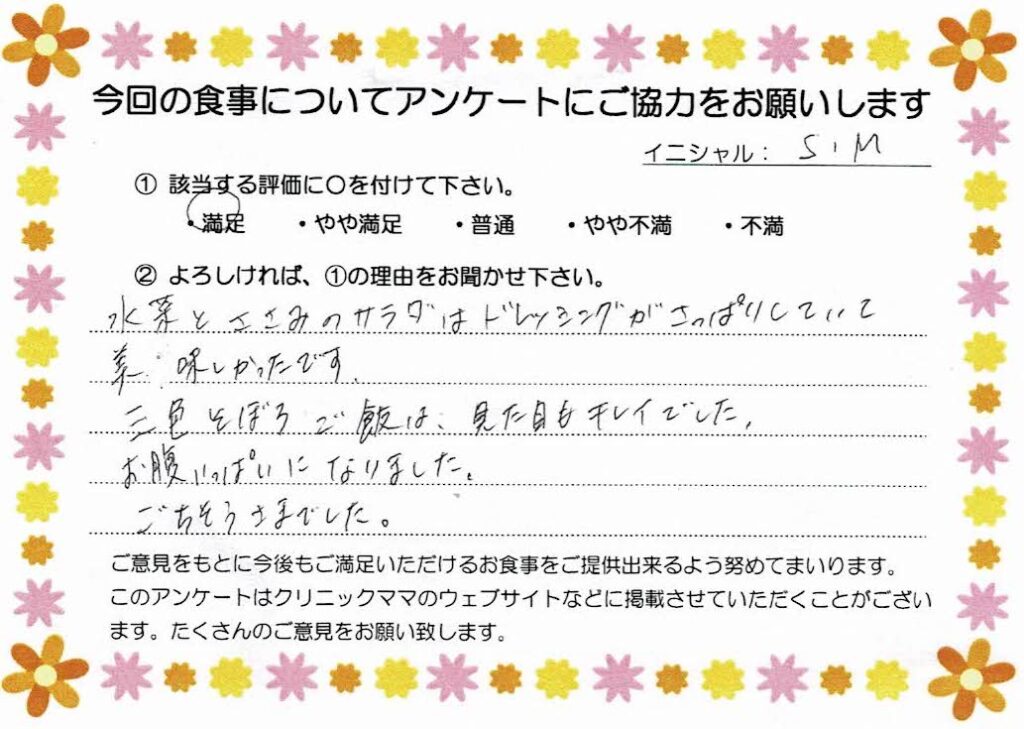 今回の食事についてアンケートにご協力をお願いします
イニシャル： S.M
① 該当する評価に〇を付けて下さい。
・満足 ・やや満足 ・普通 ・やや不満 ・不満
② よろしければ、①の理由をお聞かせ下さい。
水菜とささみのサラダはドレッシングがさっぱりしていて
美味しかったです。
三色そぼろご飯は、見た目もキレイでした。
お腹いっぱいになりました。
ごちそうさまでした。
ご意見をもとに今後もご満足いただけるお食事をご提供出来るよう努めてまいります。
このアンケートはクリニックママのウェブサイトなどに掲載させていただくことがござい
ます。たくさんのご意見をお願い致します。